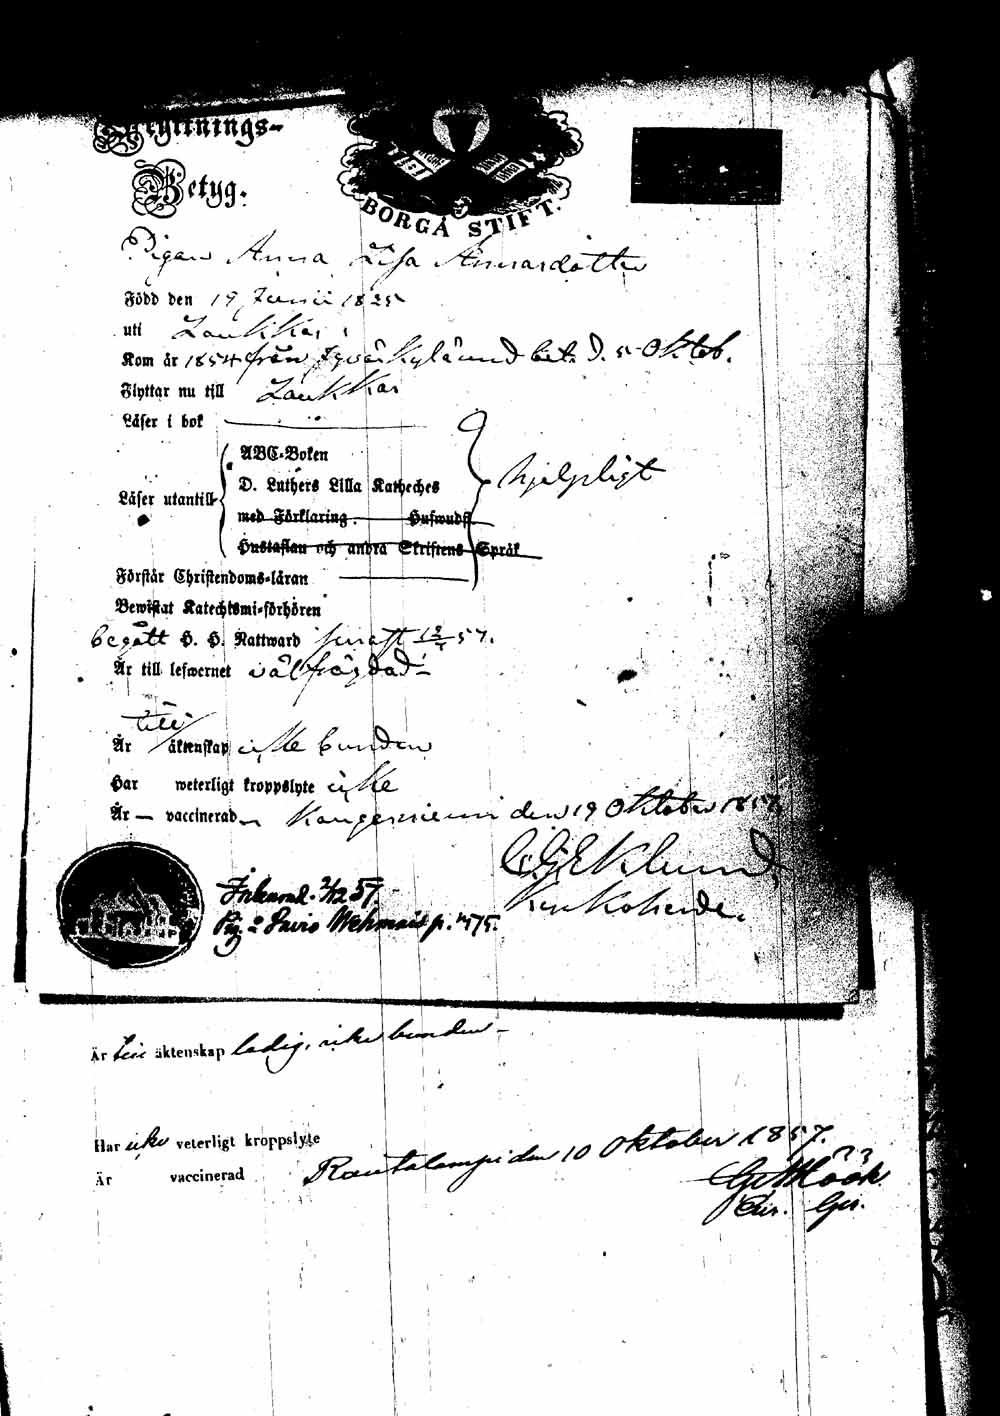 Flyttnings-
Betyg.
BORGÅ STIFT.
Pigan Anna Lisa Annasdotter
Född den 19 Junii 1825
uti Laukkas
Kom år 1854 från Jyväskylä und bet. d. 5 Oktob.
Flyttar nu till Laukkas
Läser i bok
ABC-Boken
D. Luthers Lilla Katheches
Läser utantill hjelpligt
med Förklaring. Huswudst.
Hustaflan och andra Skriftens Språk
Förstår Christendoms-läran
Bewistat Katechismi-förhören
begått H. H. Nattward 57.
Är till lefwernet välfrägdad
Är till äktenskap icke bunden
Har weterligt kroppslyte icke
Är — vaccinerad Kangasniemi den 19 Oktober 1857.
C. G. Eklund
Kyrkoherde.
Inlemnad 57.
Pig. Savio Wehmais p. 475.
Är till äktenskap ledig, icke bunden
Har icke veterligt kroppslyte
Är vaccinerad Rautalampi den 10 Oktober 1857.